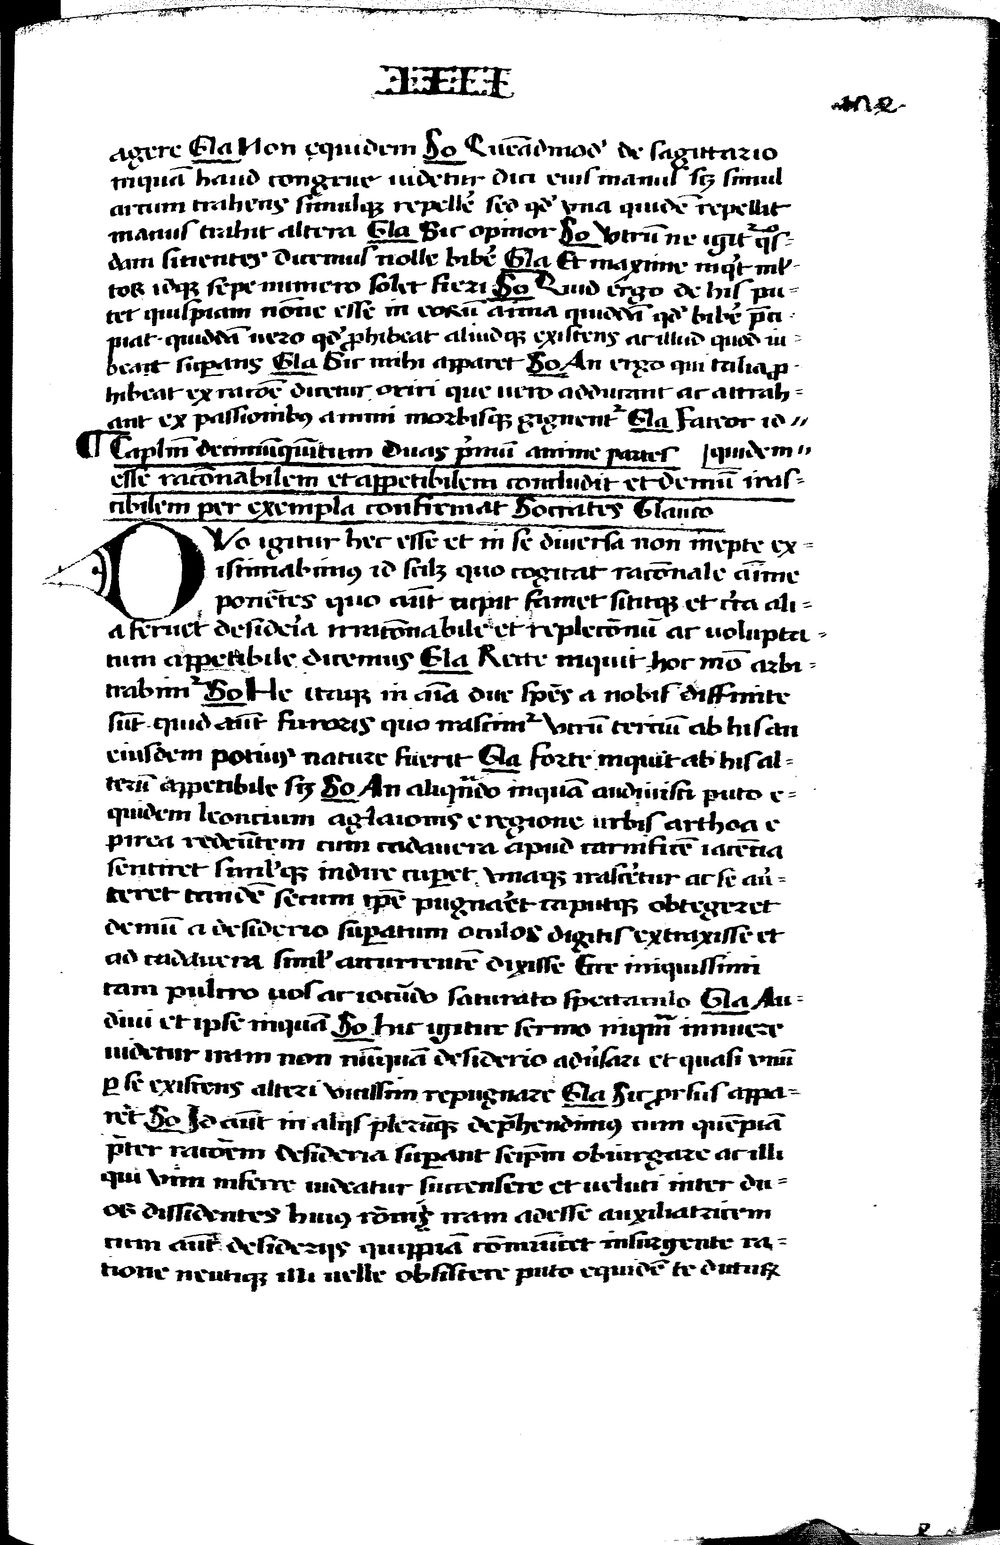 IIII
102
agere Gla Non equidem So Quēadmod' de sagittario
inquā haud congrue uidetur dici eius manus sꝫ simul
arcum trahens simulqꝫ repelle' sed qd' vna quidē repellit
manus trahit altera Gla Sic opinor So Vtrū ne igit' q's-
dam sitientes dicemus nolle bibe' Gla Et maxime inq't ml'-
toꝝ idqꝫ sepe numero solet fieri So Quid ergo de his pu-
tet quispiam nōne esse in eoꝝ aīna quiddā qd' bibe' p̄ci
piat quiddā uero qd' ꝓhibeat aliudqꝫ existens ac illud quod iu-
beat suꝑans Gla Sic mihi apparet So An ergo qui talia ꝓ-
hibeat ex racōe dicetur oriri que uero adducant ac attrah-
ant ex passionibꝰ animi morbisqꝫ gignent' Gla Fateor id
Caplm̄ decimūquītum duas p'mū anime partes quidem
esse racōnabilem et appetibilem concludit et demū iras-
cibilem per exempla confirmat Socrates Glauco
DVo igitur hec esse et in se diuersa non inepte ex-
istimabimꝰ id scilꝫ quo cogitat racōnale aīme
ponētes quo aūt cupit famet sititqꝫ et c'ca ali-
a feruet desideria irracōnabile et replecōnū ac volupta-
tum appetibile dicemus Gla Recte inquit hoc mō arbi-
trabim' So He itaqꝫ in aīa due sp̄es a nobis diffinite
sūt quid aūt furoris quo irascim' vtrū terciū ab his an
eiusdem potius nature fuerit Gla Forte inquit ab his al-
terū appetibile sꝫ So An aliqn̄do inquā audiuisti puto e-
quidem leoncium aglaionis e regione urbis arthoa e
pirea redeūtem cum cadauera apud carnificē iacētia
sentiret simulqꝫ indire cuperet vnaqꝫ irascētur ac se au'-
teret tandē secum ip̄e pugnar'et caputqꝫ obtegeret
demū a desiderio suꝑatum oculos digitis extraxisse et
ad cadauera simul' accurrentē dixisse Ecce iniquissimi
tam pulcro uos ac iocūdo saturato spectaculo Gla Au-
diui et ipse inquā So hic igitur sermo inqm̄ innuere
uidetur iram non nūquā desiderio adu'sari et quasi vnū
ꝑ se existens alteri vicissim repugnare Gla Sic ꝓrsus appa-
ret So Id aūt in alijs pleꝝqꝫ dep̄hendimꝰ cum quēpiā
p̄ter racōem desideria suꝑant seip̄m obiurgare ac illi
qui vim inferre uideatur succensere et ueluti inter du-
oꝝ dissidentes huiꝰ rōnis iram adesse auxiliatricem
cum aūt desiderijs quippiā cōmūicet insurgente ra-
tione neutiqꝫ illi uelle obsistere puto equidē te